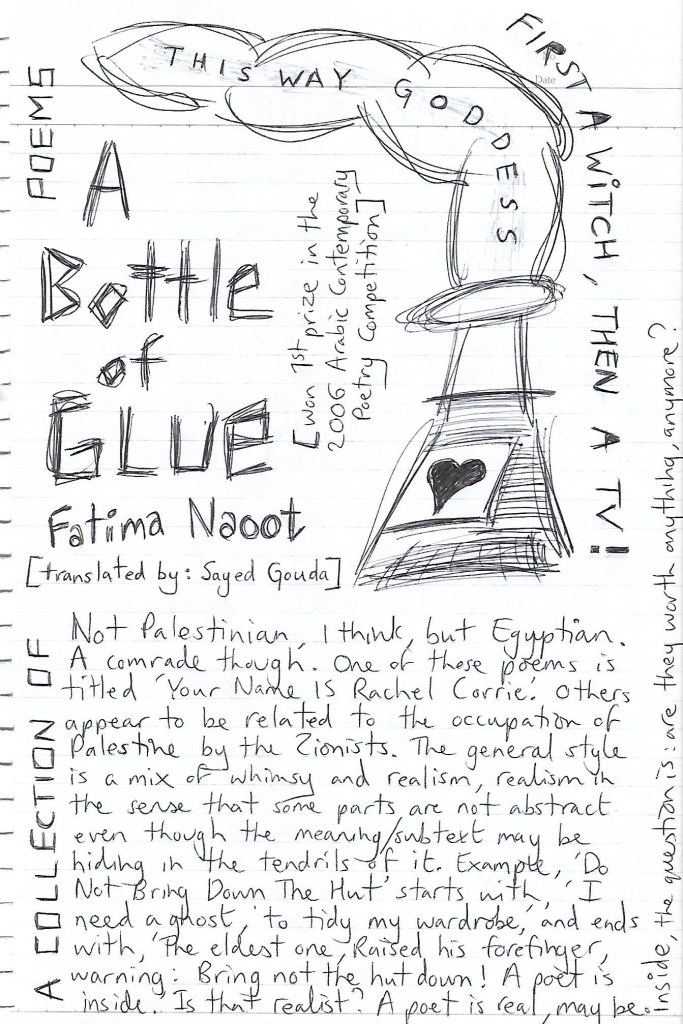 THIS WAY GODDESS
FIRST A WITCH, THEN A TV!
Date
A COLLECTION OF POEMS
A
Bottle
of
GLUE
[won 1st prize in the
2006 Arabic Contemporary
Poetry Competition]
Fatima Naoot
[translated by: Sayed Gouda]
Not Palestinian, I think, but Egyptian.
A comrade though. One of these poems is
titled 'Your Name IS Rachel Corrie'. Others
appear to be related to the occupation of
Palestine by the Zionists. The general style
is a mix of whimsy and realism, realism in
the sense that some parts are not abstract
even though the meaning/subtext may be
hiding in the tendrils of it. Example, 'Do
Not Bring Down The Hut' starts with, 'I
need a ghost, to tidy my wardrobe,' and ends
with, 'The eldest one, Raised his forefinger,
warning: Bring not the hut down! A poet is
inside.' Is that realist? A poet is real, may be.
Inside, the question is: are they worth anything, anymore?